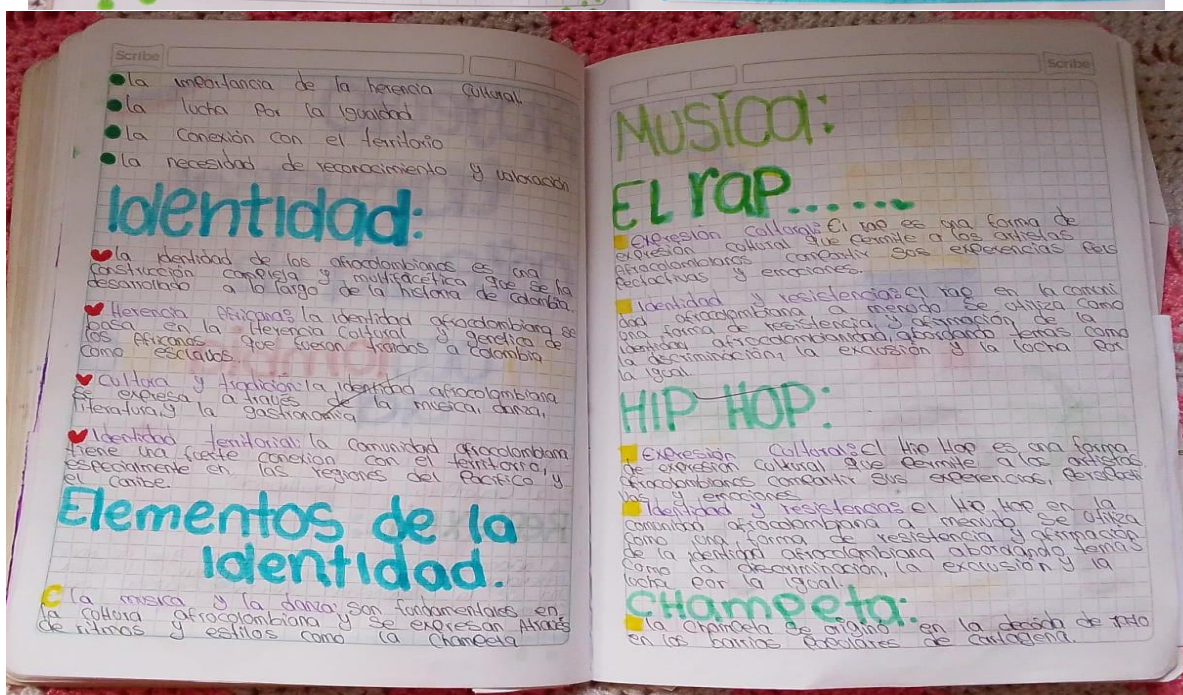 Scribe
la importancia de la herencia cultural.
la lucha por la igualdad
la conexión con el territorio
la necesidad de reconocimiento y valoración
Identidad:
la identidad de los afrocolombianos es una
construcción compleja y multifacética que se ha
desarrollado a lo largo de la historia de colombia.
Herencia Africana: la identidad afrocolombiana se
basa en la Herencia cultural y genetica de
los Africanos que fueron traidos a colombia
como esclavos.
cultura y tradición: la identidad afrocolombiana
se expresa a través de la musica, danza,
literatura, y la gastronomia
Identidad territorial: la comunidad afrocolombiana
tiene una fuerte conexion con el territorio,
especialmente en las regiones del Pacífico y
el caribe.
Elementos de la
Identidad.
la musica y la danza: son fundamentales en
la cultura afrocolombiana y se expresan Atraves
de ritmos y estilos como la champeta
Scribe
Musical:
EL rap......
Expresión cultural: El rap es una forma de
expresión cultural que permite a los artistas
Afrocolombianos compartir sus experencias pers
pectactivas y emociones.
Identidad y resistencia: el rap en la comuni
dad afrocolombiana, a menudo se utiliza como
una forma de resistencia y afirmación de la
identidad afrocolombiana, abordando temas como
la discriminación, la exclusión y la lucha por
la igual.
HIP HOP:
Expresión cultural: el Hip Hop es una forma
de expresión cultural que permite a los artistas
afrocolombianos compartir sus experencias,
vas y emociones
Identidad y resistencia: el Hip Hop en la
comunidad afrocolombiana a menudo se utiliza
como una forma de resistencia y afirmación
de la identidad afrocolombiana abordando temas
como la discriminación, la exclusión y la
lucha por la igual.
CHampeta:
la champeta se origino en la decada de
en los barrios populares de cartagena.